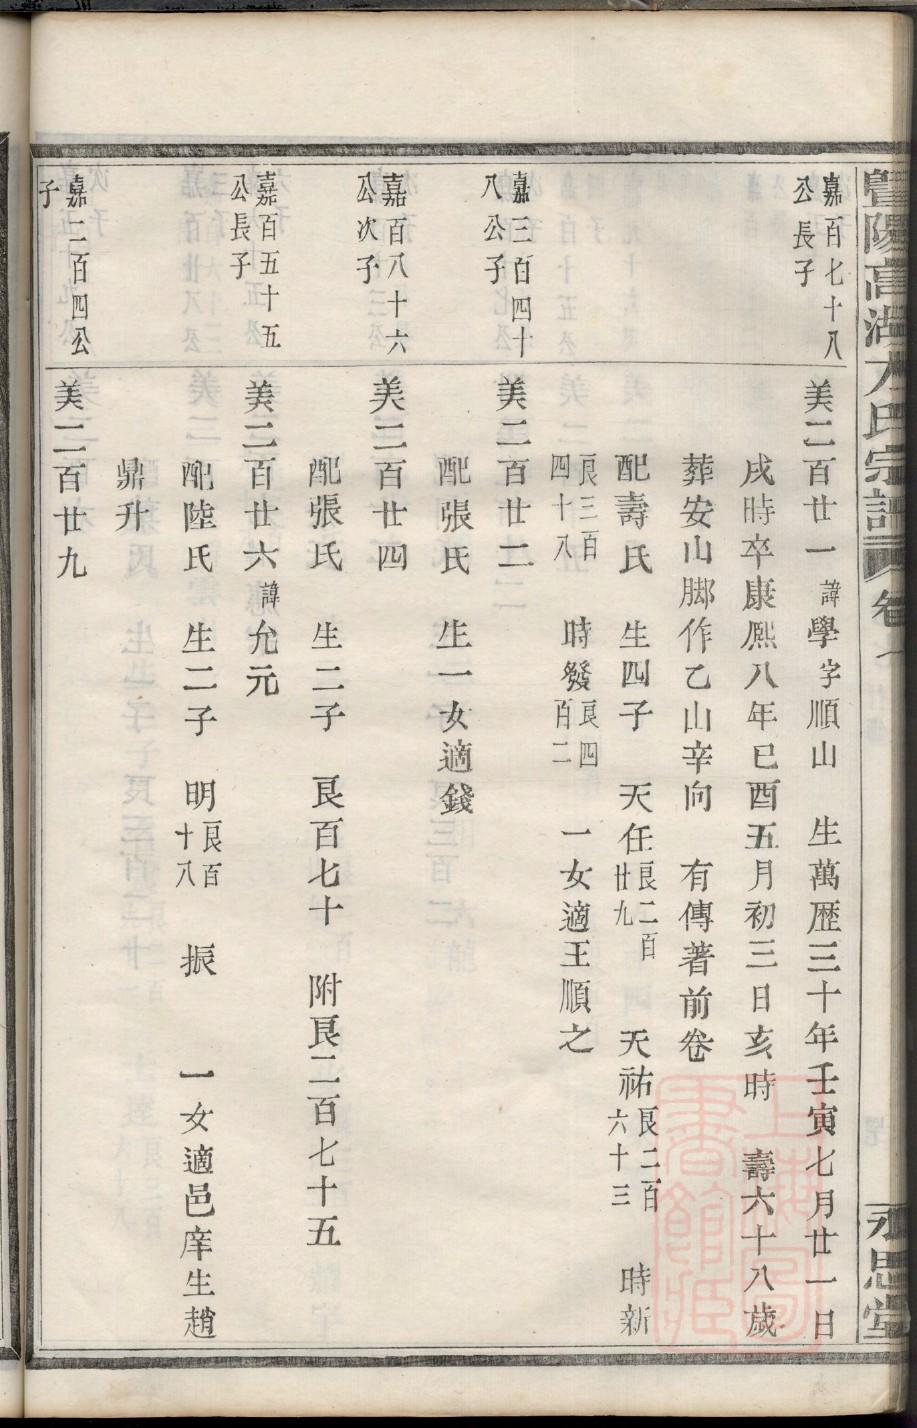 暨陽高湖方氏宗譜 卷
永思堂
嘉百七十八
公長子
美二百廿一 諱學 字順山 生萬歷三十年壬寅七月廿一日
戌時卒康熙八年巳酉五月初三日亥時 壽六十八歲
葬安山脚作乙山辛向 有傳著前卷
配壽氏 生四子 天任 艮二百廿九 天祐 艮二百六十三 時新
艮三百四十八 時發 艮四百二 一女適王順之
嘉三百四十
八公子
美二百廿二
配張氏 生一女適錢
嘉百八十六
公次子
美二百廿四
配張氏 生二子 艮百七十 附艮二百七十五
嘉百五十五
公長子
美二百廿六 諱允元
配陸氏 生二子 明 艮百十八 振 一女適邑庠生趙
鼎升
嘉二百四公
子
美二百廿九